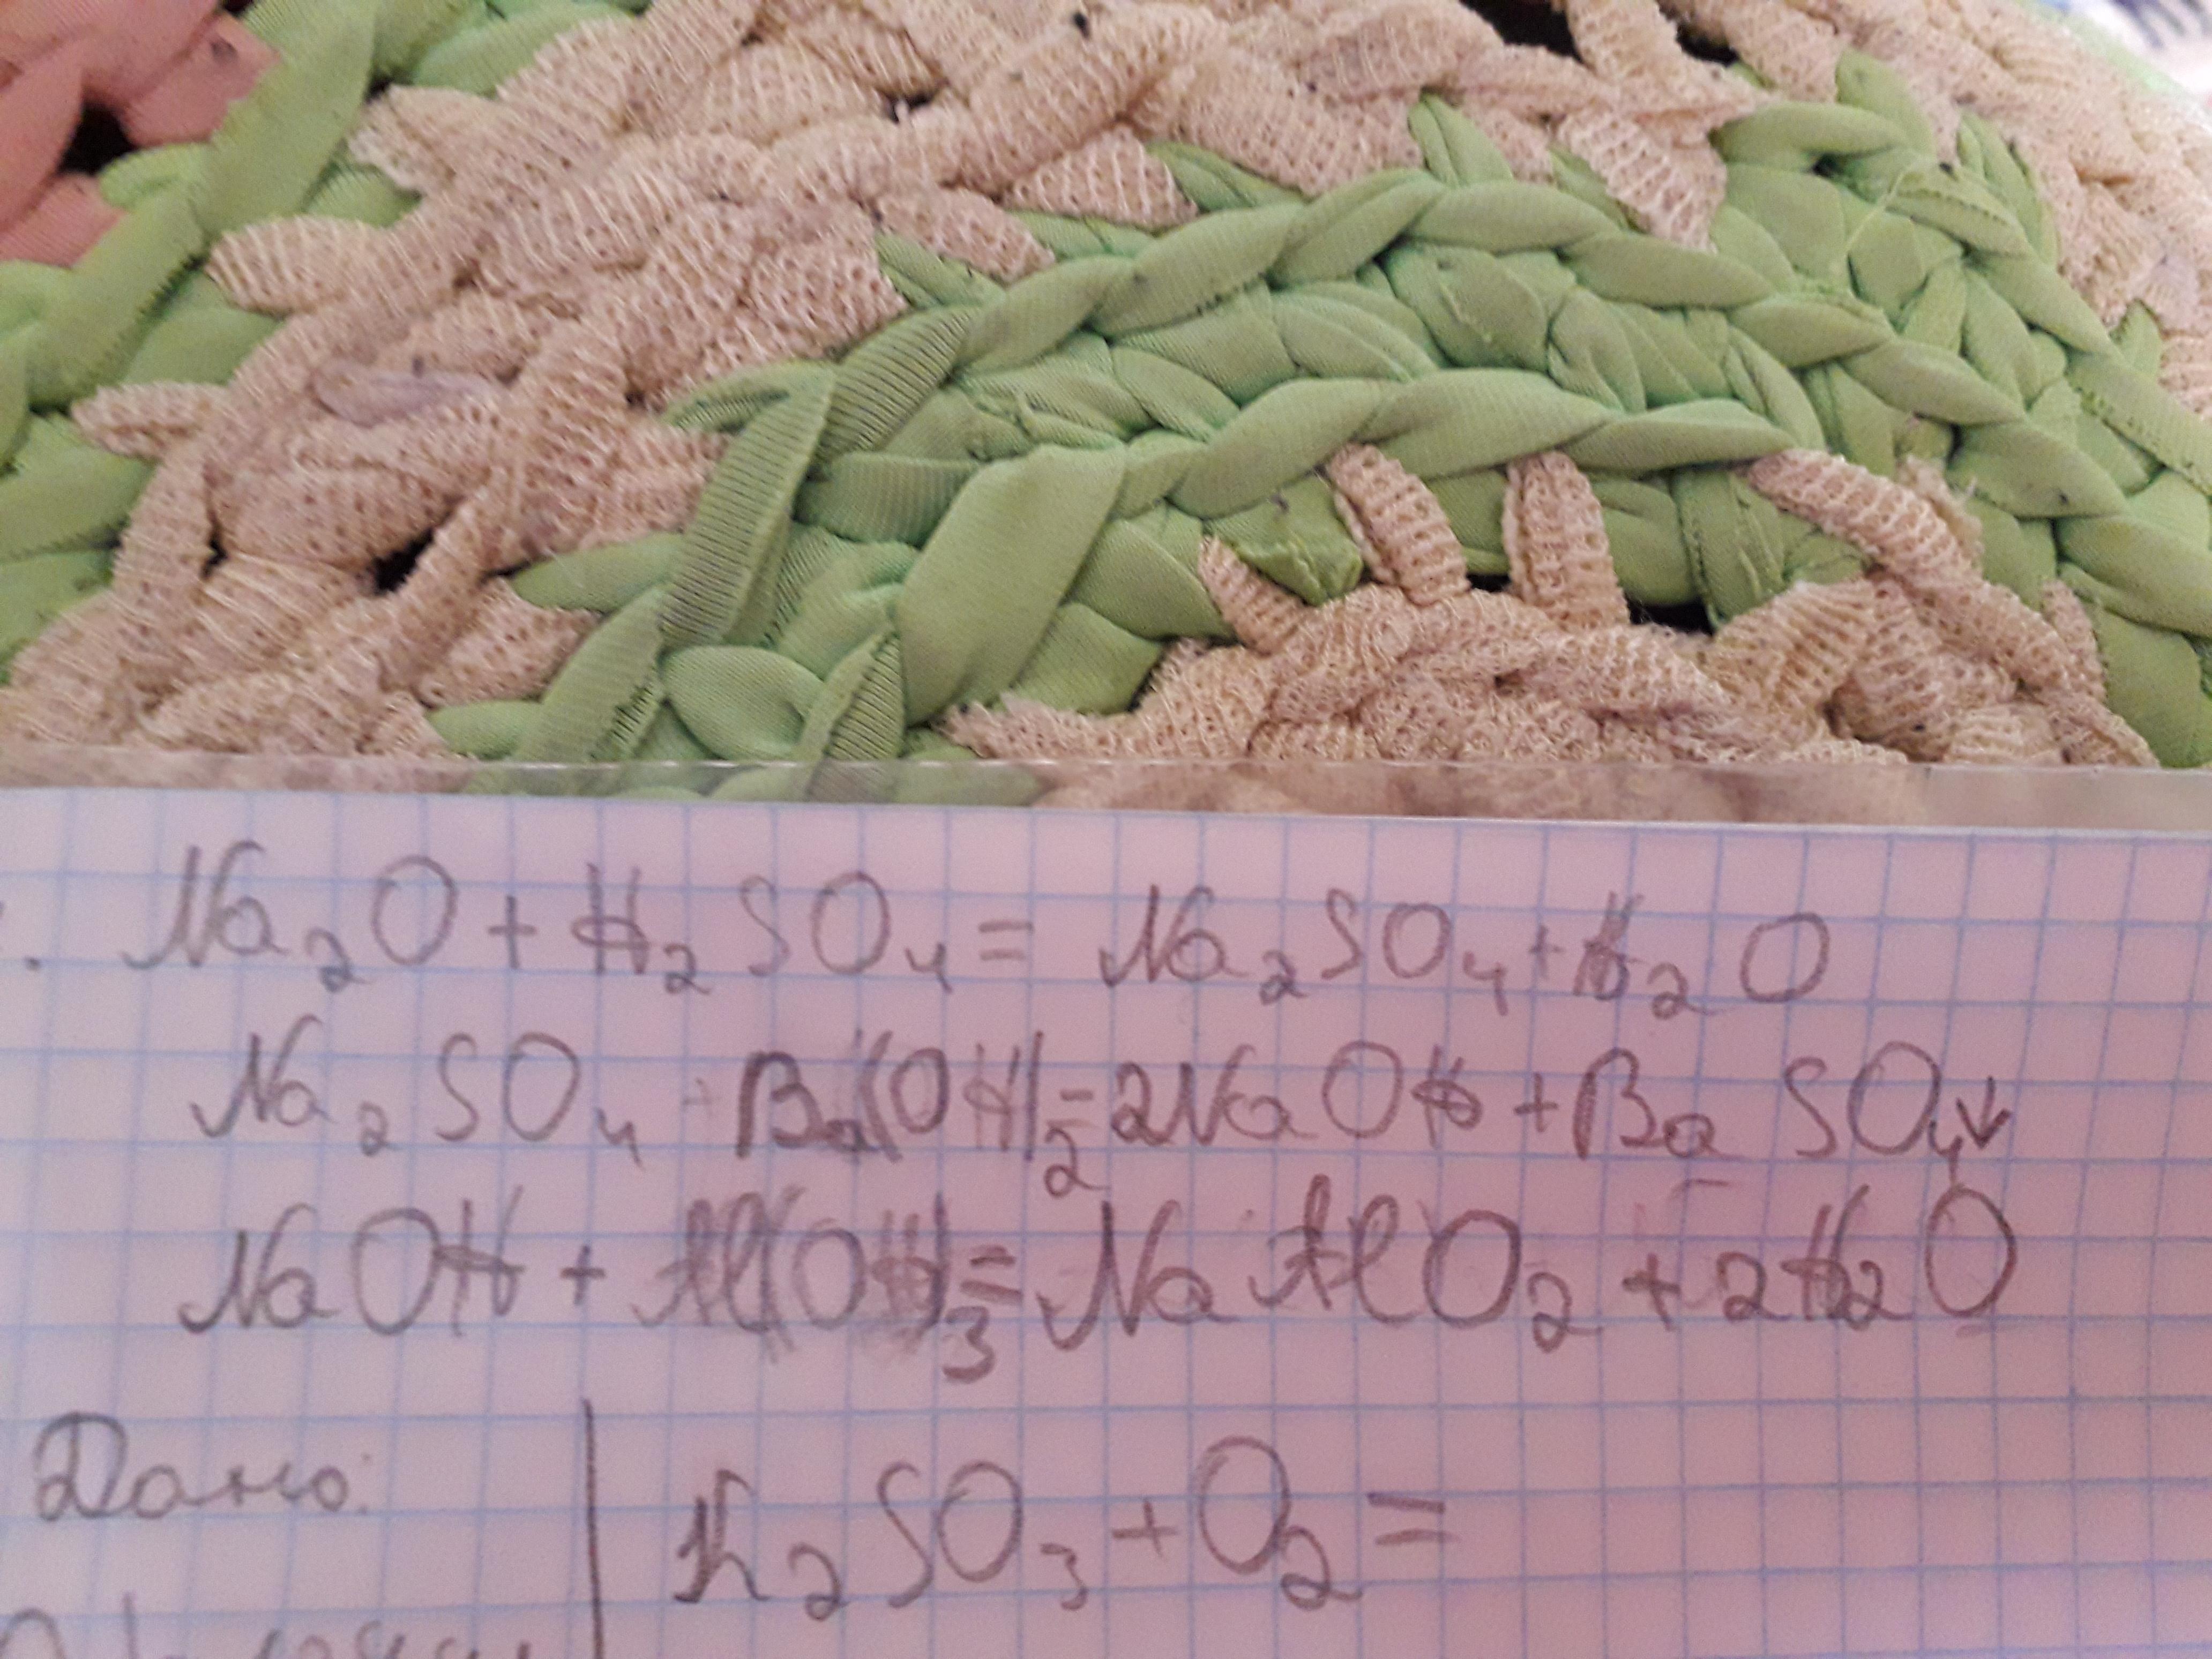 Na₂O + H₂SO₄ = Na₂SO₄ + H₂O
Na₂SO₄ + Ba(OH)₂ = 2NaOH + BaSO₄↓
NaOH + Al(OH)₃ = NaAlO₂ + 2H₂O
Дано:
K₂SO₃ + O₂ =